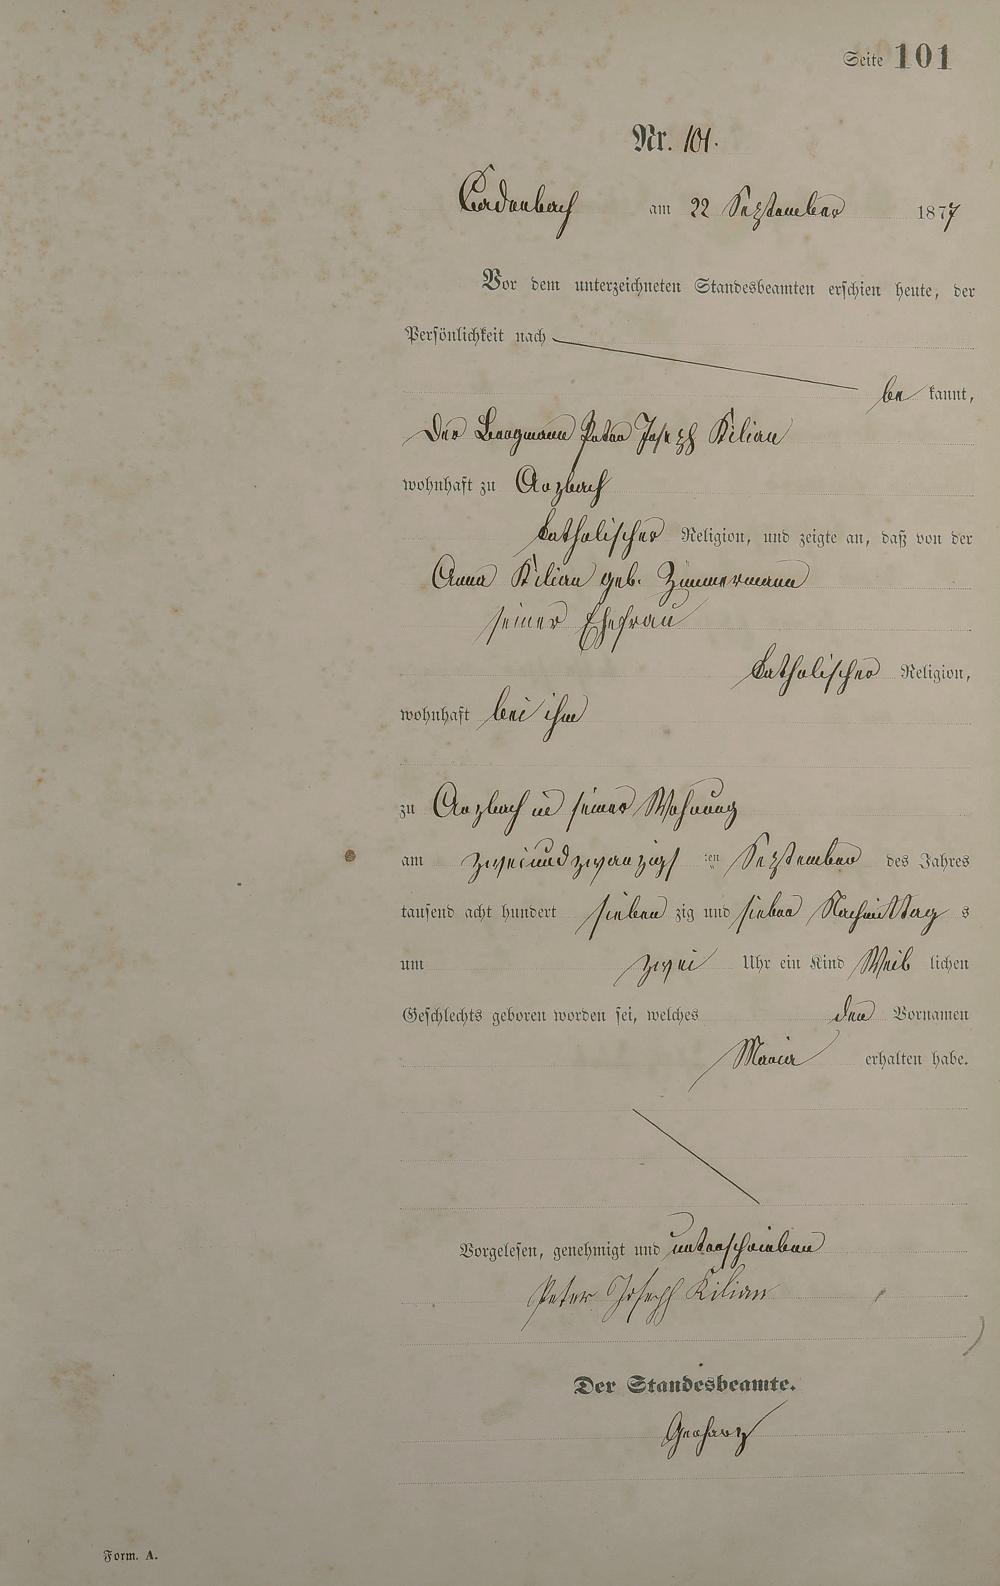 Seite 101
Nr. 101.
Cadenbach am 22 September 1877
Vor dem unterzeichneten Standesbeamten erschien heute, der
Persönlichkeit nach
be kannt,
der Bergmann Peter Joseph Kilian
wohnhaft zu Arzbach
katholischer Religion, und zeigte an, daß von der
Anna Kilian geb. Zimmermann
seiner Ehefrau
katholischer Religion,
wohnhaft bei ihm
zu Arzbach in seiner Wohnung
am zweiundzwanzigsten September des Jahres
tausend acht hundert sieben zig und sieben Nachmittag s
um zwei Uhr ein Kind Weib lichen
Geschlechts geboren worden sei, welches den Vornamen
Maria erhalten habe.
Vorgelesen, genehmigt und unterschrieben
Peter Joseph Kilian
Der Standesbeamte.
Gerharz
Form. A.